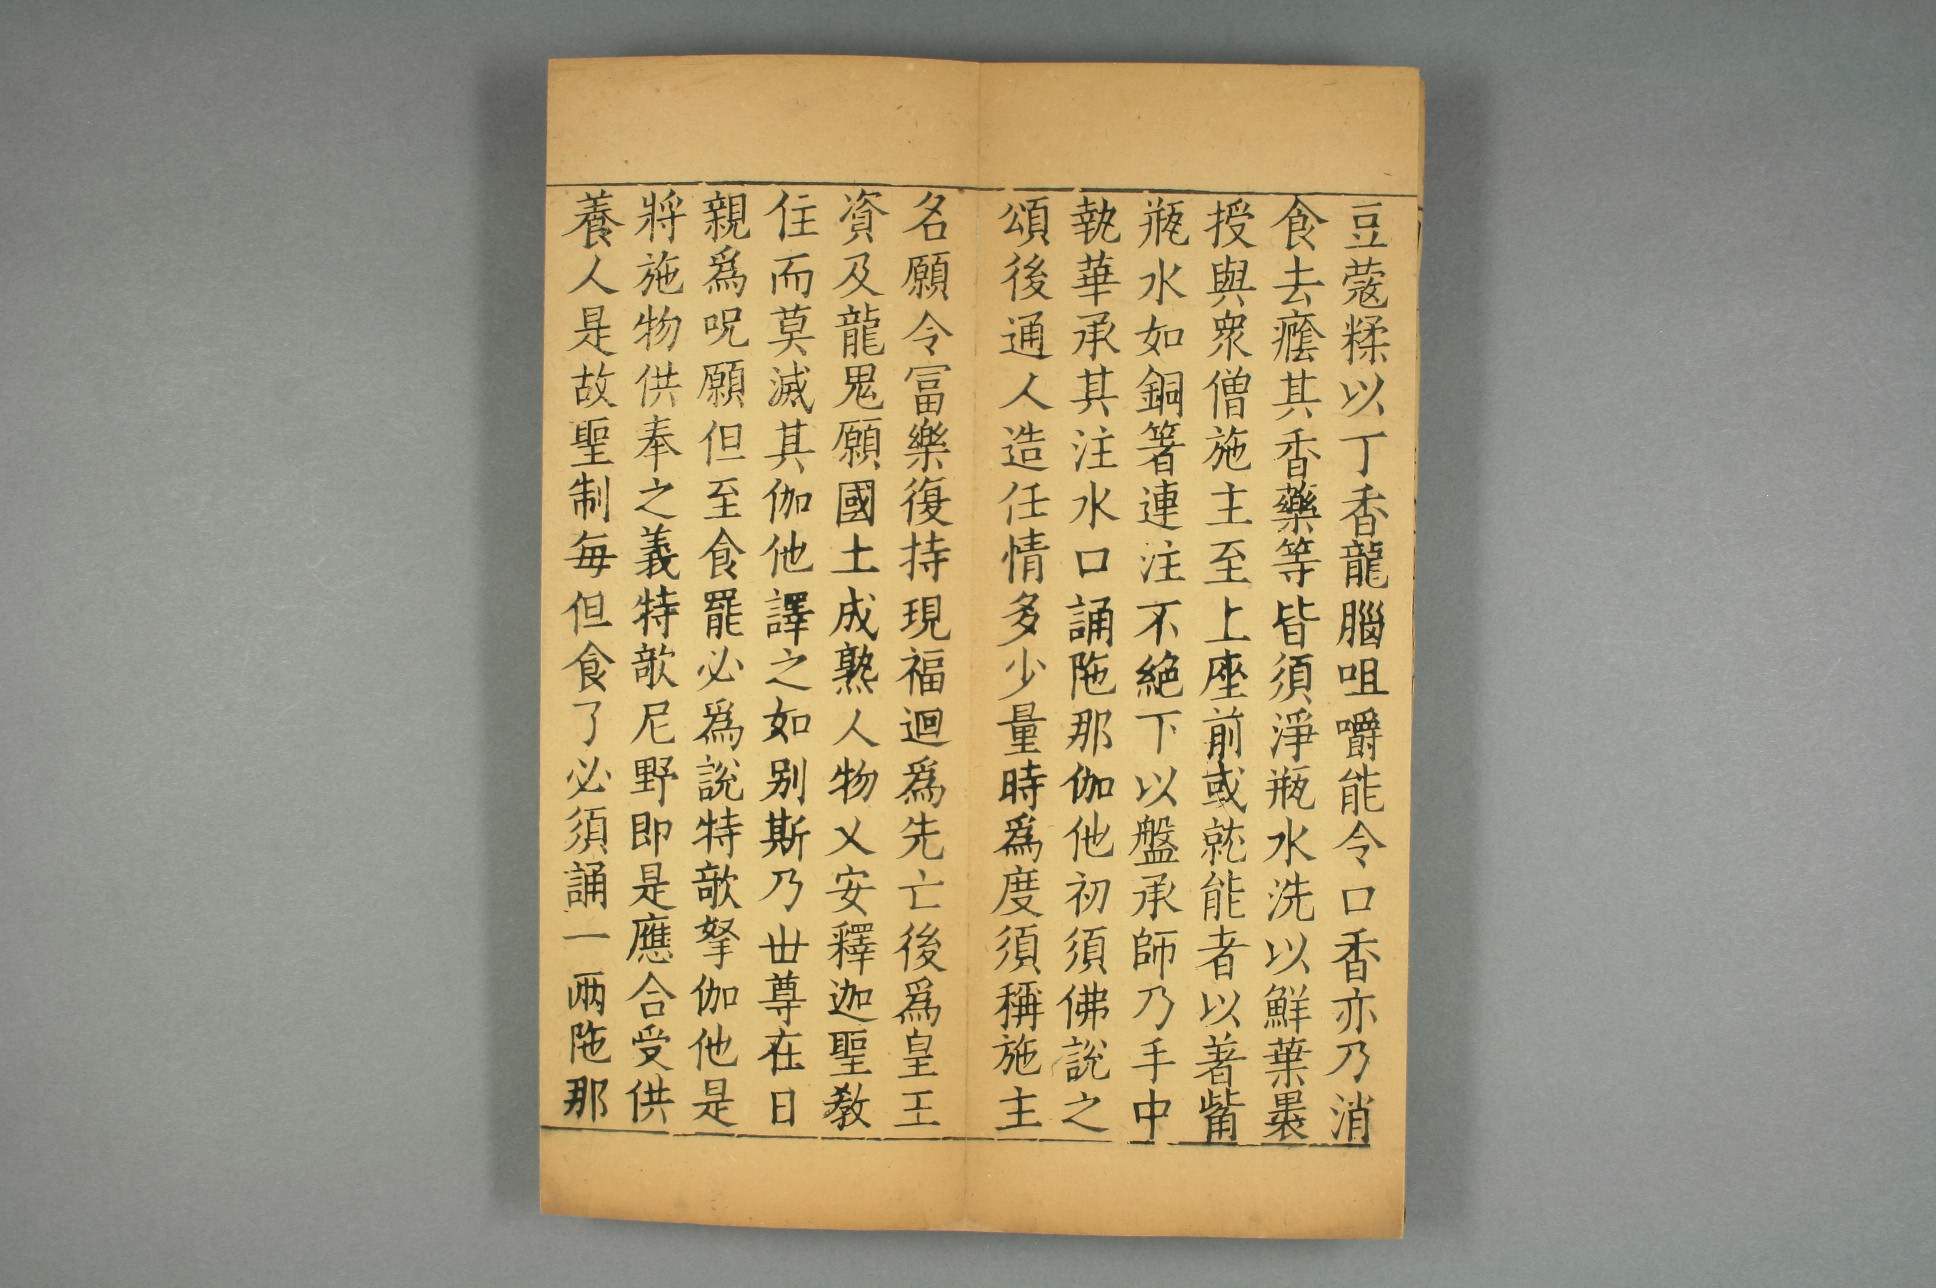 豆蔻糅以丁香龍腦咀嚼能令口香亦乃消
食去癊其香藥等皆須淨瓶水洗以鮮葉褁
授與衆僧施主至上座前或就能者以著觜
瓶水如銅箸連注不絕下以盤承師乃手中
執華承其注水口誦陁那伽他初須佛說之
頌後通人造任情多少量時爲度須稱施主
名願令冨樂復持現福迴爲先亡後爲皇王
資及龍鬼願國土成熟人物乂安釋迦聖教
住而莫滅其伽他譯之如别斯乃丗尊在日
親爲呪願但至食罷必爲說特㰤拏伽他是
將施物供奉之義特㰤尼野即是應合受供
養人是故聖制每但食了必須誦一兩陁那